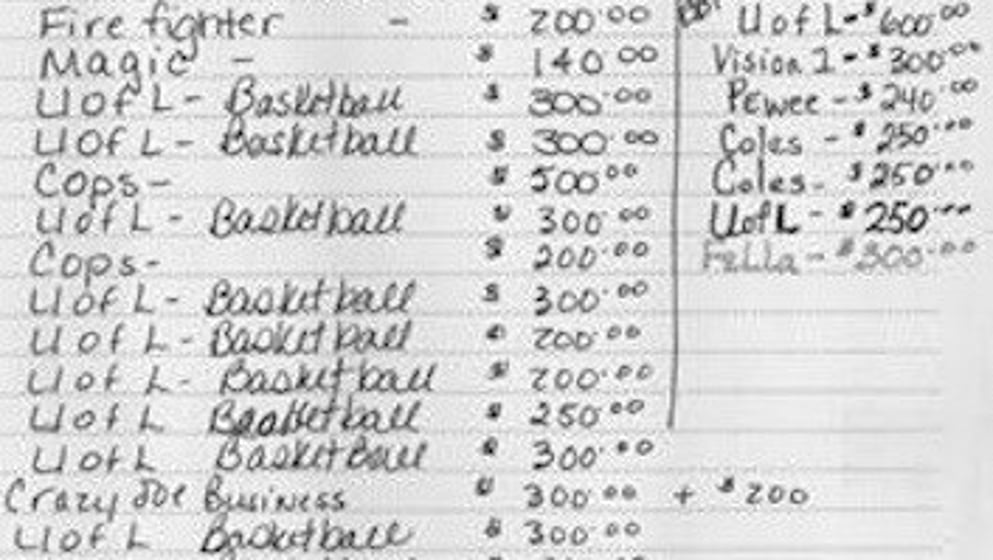 Fire fighter - $ 200.00
Magic - $ 140.00
U of L - Basketball $ 300.00
U of L - Basketball $ 300.00
Cops - $ 500.00
U of L - Basketball $ 300.00
Cops - $ 200.00
U of L - Basketball $ 300.00
U of L - Basketball $ 200.00
U of L - Basketball $ 200.00
U of L Basketball $ 250.00
U of L Basketball $ 300.00
Crazy Joe Business $ 300.00 + $200
U of L Basketball $ 300.00
U of L - $600.00
Vision 1 - $300.00
PEwee - $240.00
Coles - $250.00
Coles - $250.00
U of L - $250.00
Fella - $300.00